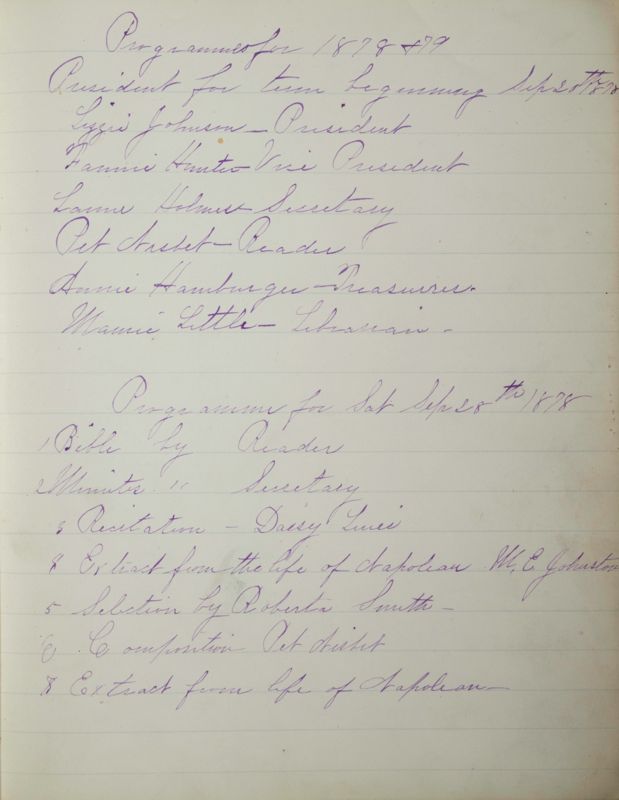 Programmes for 1878 & 79
President for term beginning Sep 28th 1878
Lizzie Johnson - President
Fannie Hunter Vice President
Holmes Secretary
Pet Nisbet - Reader
Annie Hamburger - Treasurer.
Mamie Little - Librarian -
Programme for Sat Sep 28th 1878
1 Bible by Reader
2 Minutes " Secretary
3 Recitation - Daisy
8 Extract from the life of Napolean W, E Johnston
5 Selection by Roberta Smith -
6 Composition Pet Nisbet
8 Extract from life of Napolean -